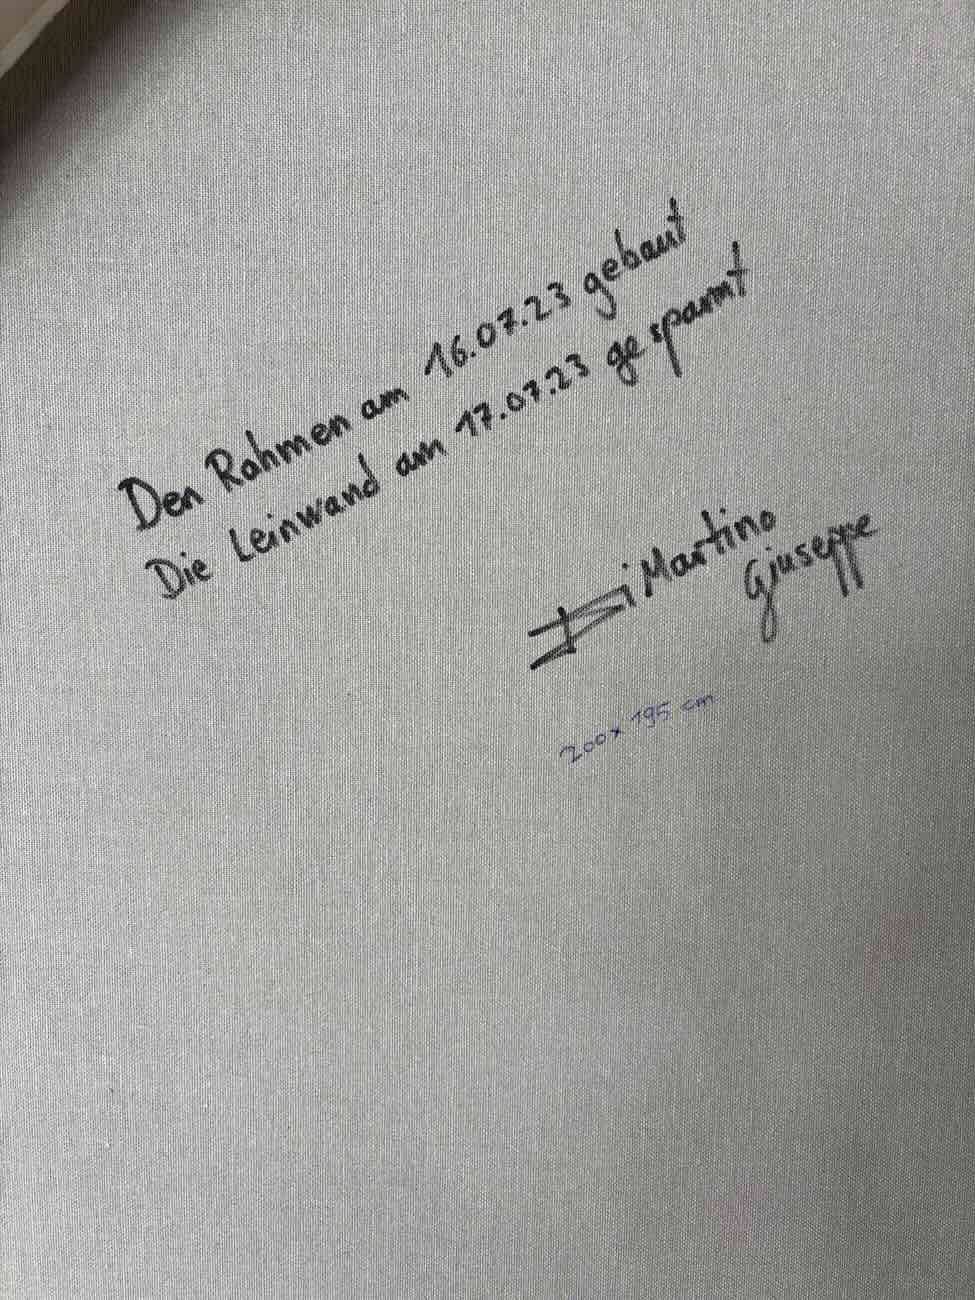 Den Rahmen am 16.07.23 gebaut
Die Leinwand am 17.07.23 gespannt
Di Martino
Giuseppe
200x195 cm